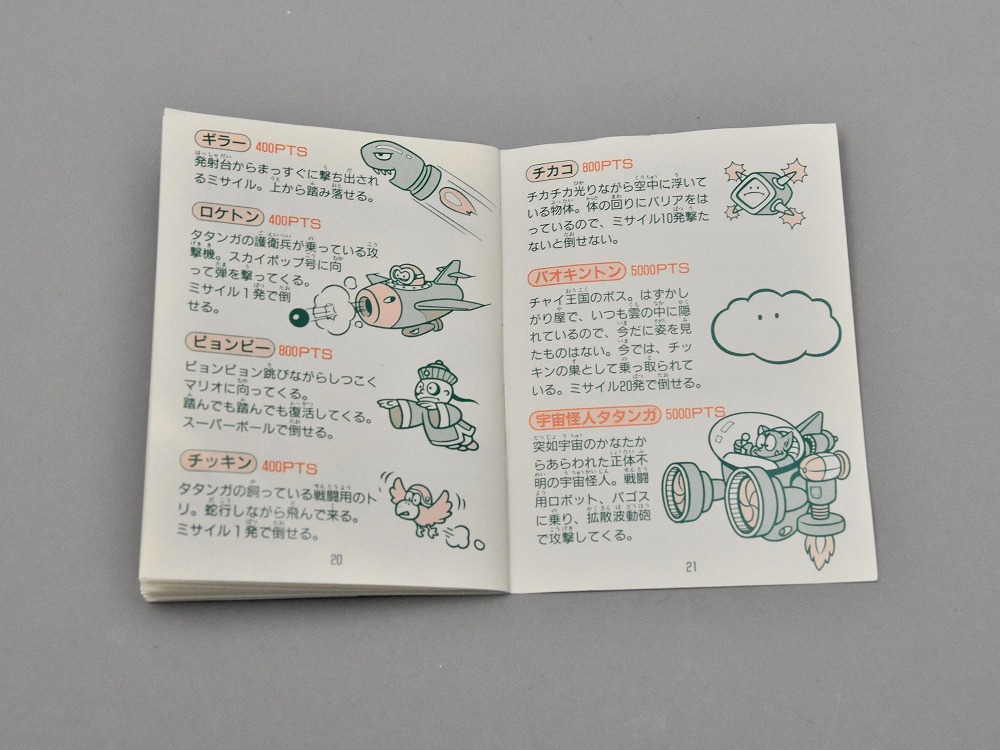 ギラー 400PTS
発射台からまっすぐに撃ち出され
るミサイル。上から踏み落せる。
ロケトン 400PTS
タタンガの護衛兵が乗っている攻
撃機。スカイポップ号に向
って弾を撃ってくる。
ミサイル1発で倒
せる。
ピョンピー 800PTS
ピョンピョン跳びながらしつこく
マリオに向ってくる。
踏んでも踏んでも復活してくる。
スーパーボールで倒せる。
チッキン 400PTS
タタンガの飼っている戦闘用のト
リ。蛇行しながら飛んで来る。
ミサイル1発で倒せる。
20
チカコ 800PTS
チカチカ光りながら空中に浮いて
いる物体。体の回りにバリアをは
っているので、ミサイル10発撃た
ないと倒せない。
パオキントン 5000PTS
チャイ王国のボス。はずかし
がり屋で、いつも雲の中に隠
れているので、今だに姿を見
たものはない。今では、チッ
キンの巣として乗っ取られて
いる。ミサイル20発で倒せる。
宇宙怪人タタンガ 5000PTS
突如宇宙のかなたか
らあらわれた正体不
明の宇宙怪人。戦闘
用ロボット、パゴス
に乗り、拡散波動砲
で攻撃してくる。
21